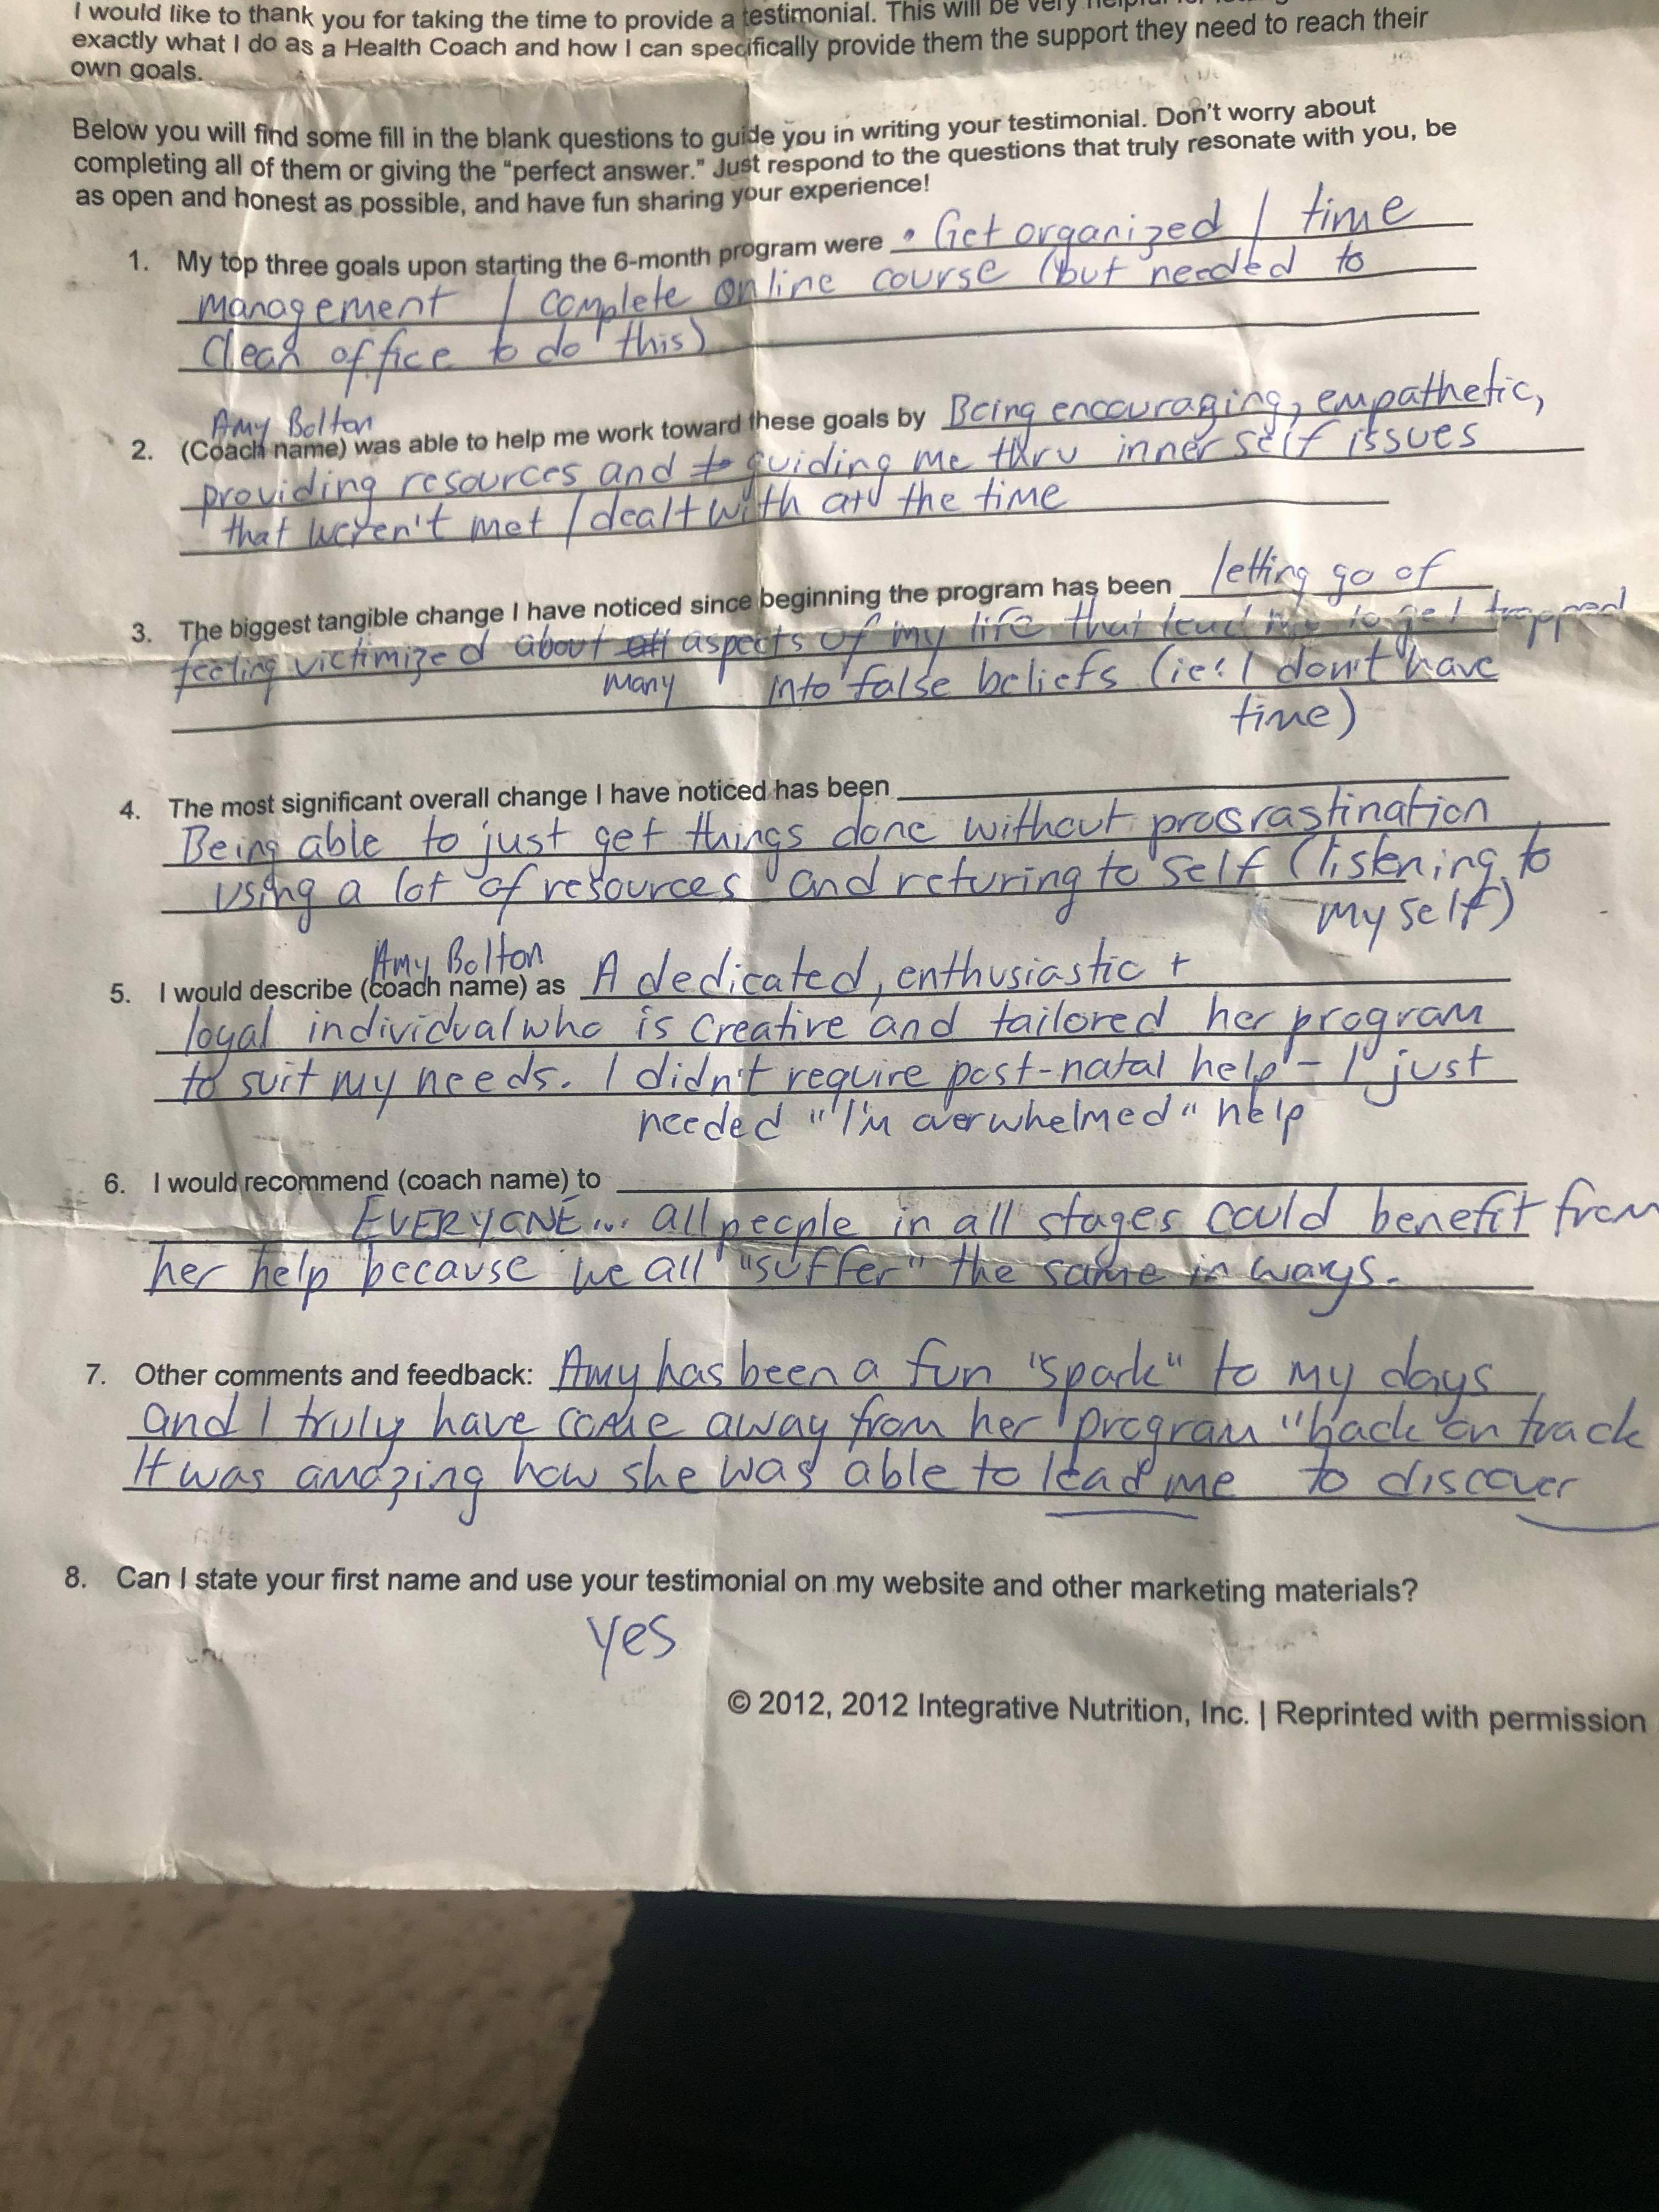 I would like to thank you for taking the time to provide a testimonial. This will be very
exactly what I do as a Health Coach and how I can specifically provide them the support they need to reach their
own goals.
Below you will find some fill in the blank questions to guide you in writing your testimonial. Don't worry about
completing all of them or giving the "perfect answer." Just respond to the questions that truly resonate with you, be
as open and honest as possible, and have fun sharing your experience!
1. My top three goals upon starting the 6-month program were • Get organized / time
management / complete online course (but needed to
clean office to do this)
Amy Bolton
2. (Coach name) was able to help me work toward these goals by Being encouraging, empathetic,
providing resources and to guiding me thru inner self issues
that weren't met / dealt with at the time
3. The biggest tangible change I have noticed since beginning the program has been letting go of
feeling victimized about all aspects of my life that lead me to get trapped
many into false beliefs (ie: I don't have
time)
4. The most significant overall change I have noticed has been
Being able to just get things done without procrastination
using a lot of resources and returing to self (listening to
myself)
Amy Bolton
5. I would describe (coach name) as A dedicated, enthusiastic +
loyal individual who is creative and tailored her program
to suit my needs. I didn't require post-natal help - I just
needed "I'm overwhelmed" help
6. I would recommend (coach name) to
EVERYONE... all people in all stages could benefit from
her help because we all "suffer" the same in ways.
7. Other comments and feedback: Amy has been a fun "spark" to my days
and I truly have come away from her program "back on track
It was amazing how she was able to lead me to discover
8. Can I state your first name and use your testimonial on my website and other marketing materials?
yes
© 2012, 2012 Integrative Nutrition, Inc. | Reprinted with permission